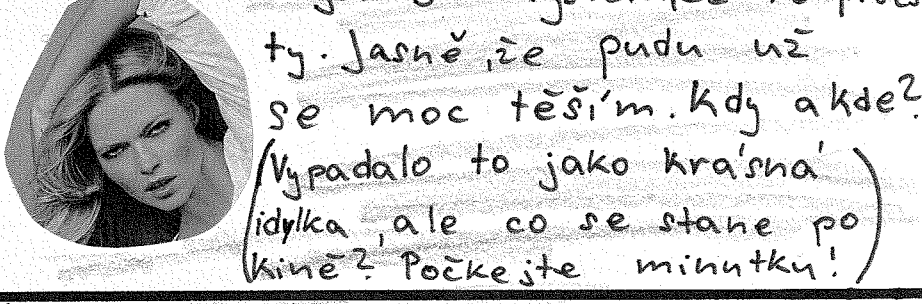 ty. Jasně, že pudu už
se moc těším. Kdy a kde?
(Vypadalo to jako krásná
idylka, ale co se stane po
kině? Počkejte minutku!)